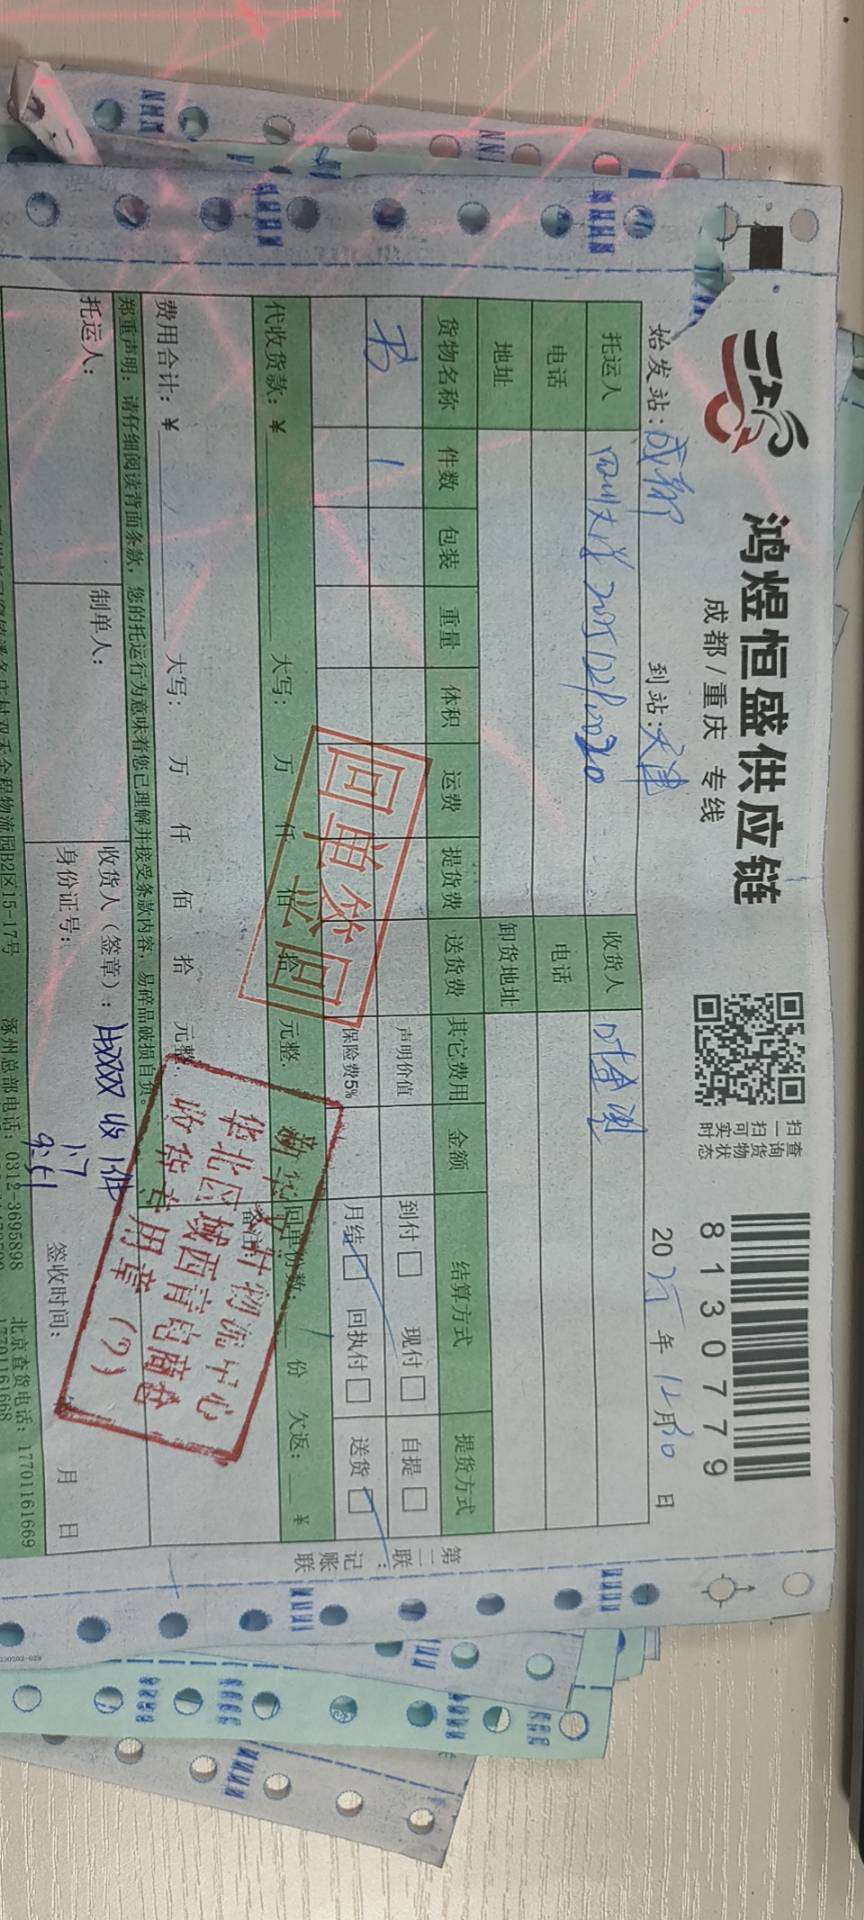 鸿煜恒盛供应链
成都/重庆 专线
扫一扫可实时
查询货物状态
81307779
始发站:成都 到站:天津 2025年12月30日
托运人 四川大学 收货人
电话 电话
地址 卸货地址
货物名称 件数 包装 重量 体积 运费 提货费 送货费 其它费用 金额 结算方式 提货方式
书 1 声明价值 到付 现付 自提
保险费5% 月结 回执付 送货
代收货款:¥ 大写: 万 仟 佰 拾 元整. 回单份数: 1 份 欠返: ¥
费用合计:¥ 大写: 万 仟 佰 拾 元整. 备注:
郑重声明:请仔细阅读背面条款,您的托运行为意味着您已理解并接受条款内容,易碎品破损自负。
托运人: 制单人: 收货人(签章): 收1件
1.7
9:51
身份证号: 签收时间: 月 日
园B2区15-17号 涿州总部电话:0312-3695898 北京查货电话:17701161669
17701161668
第二联:记账联
回单签回
物流中心
华北区域西南电商仓
收货专用章(7)